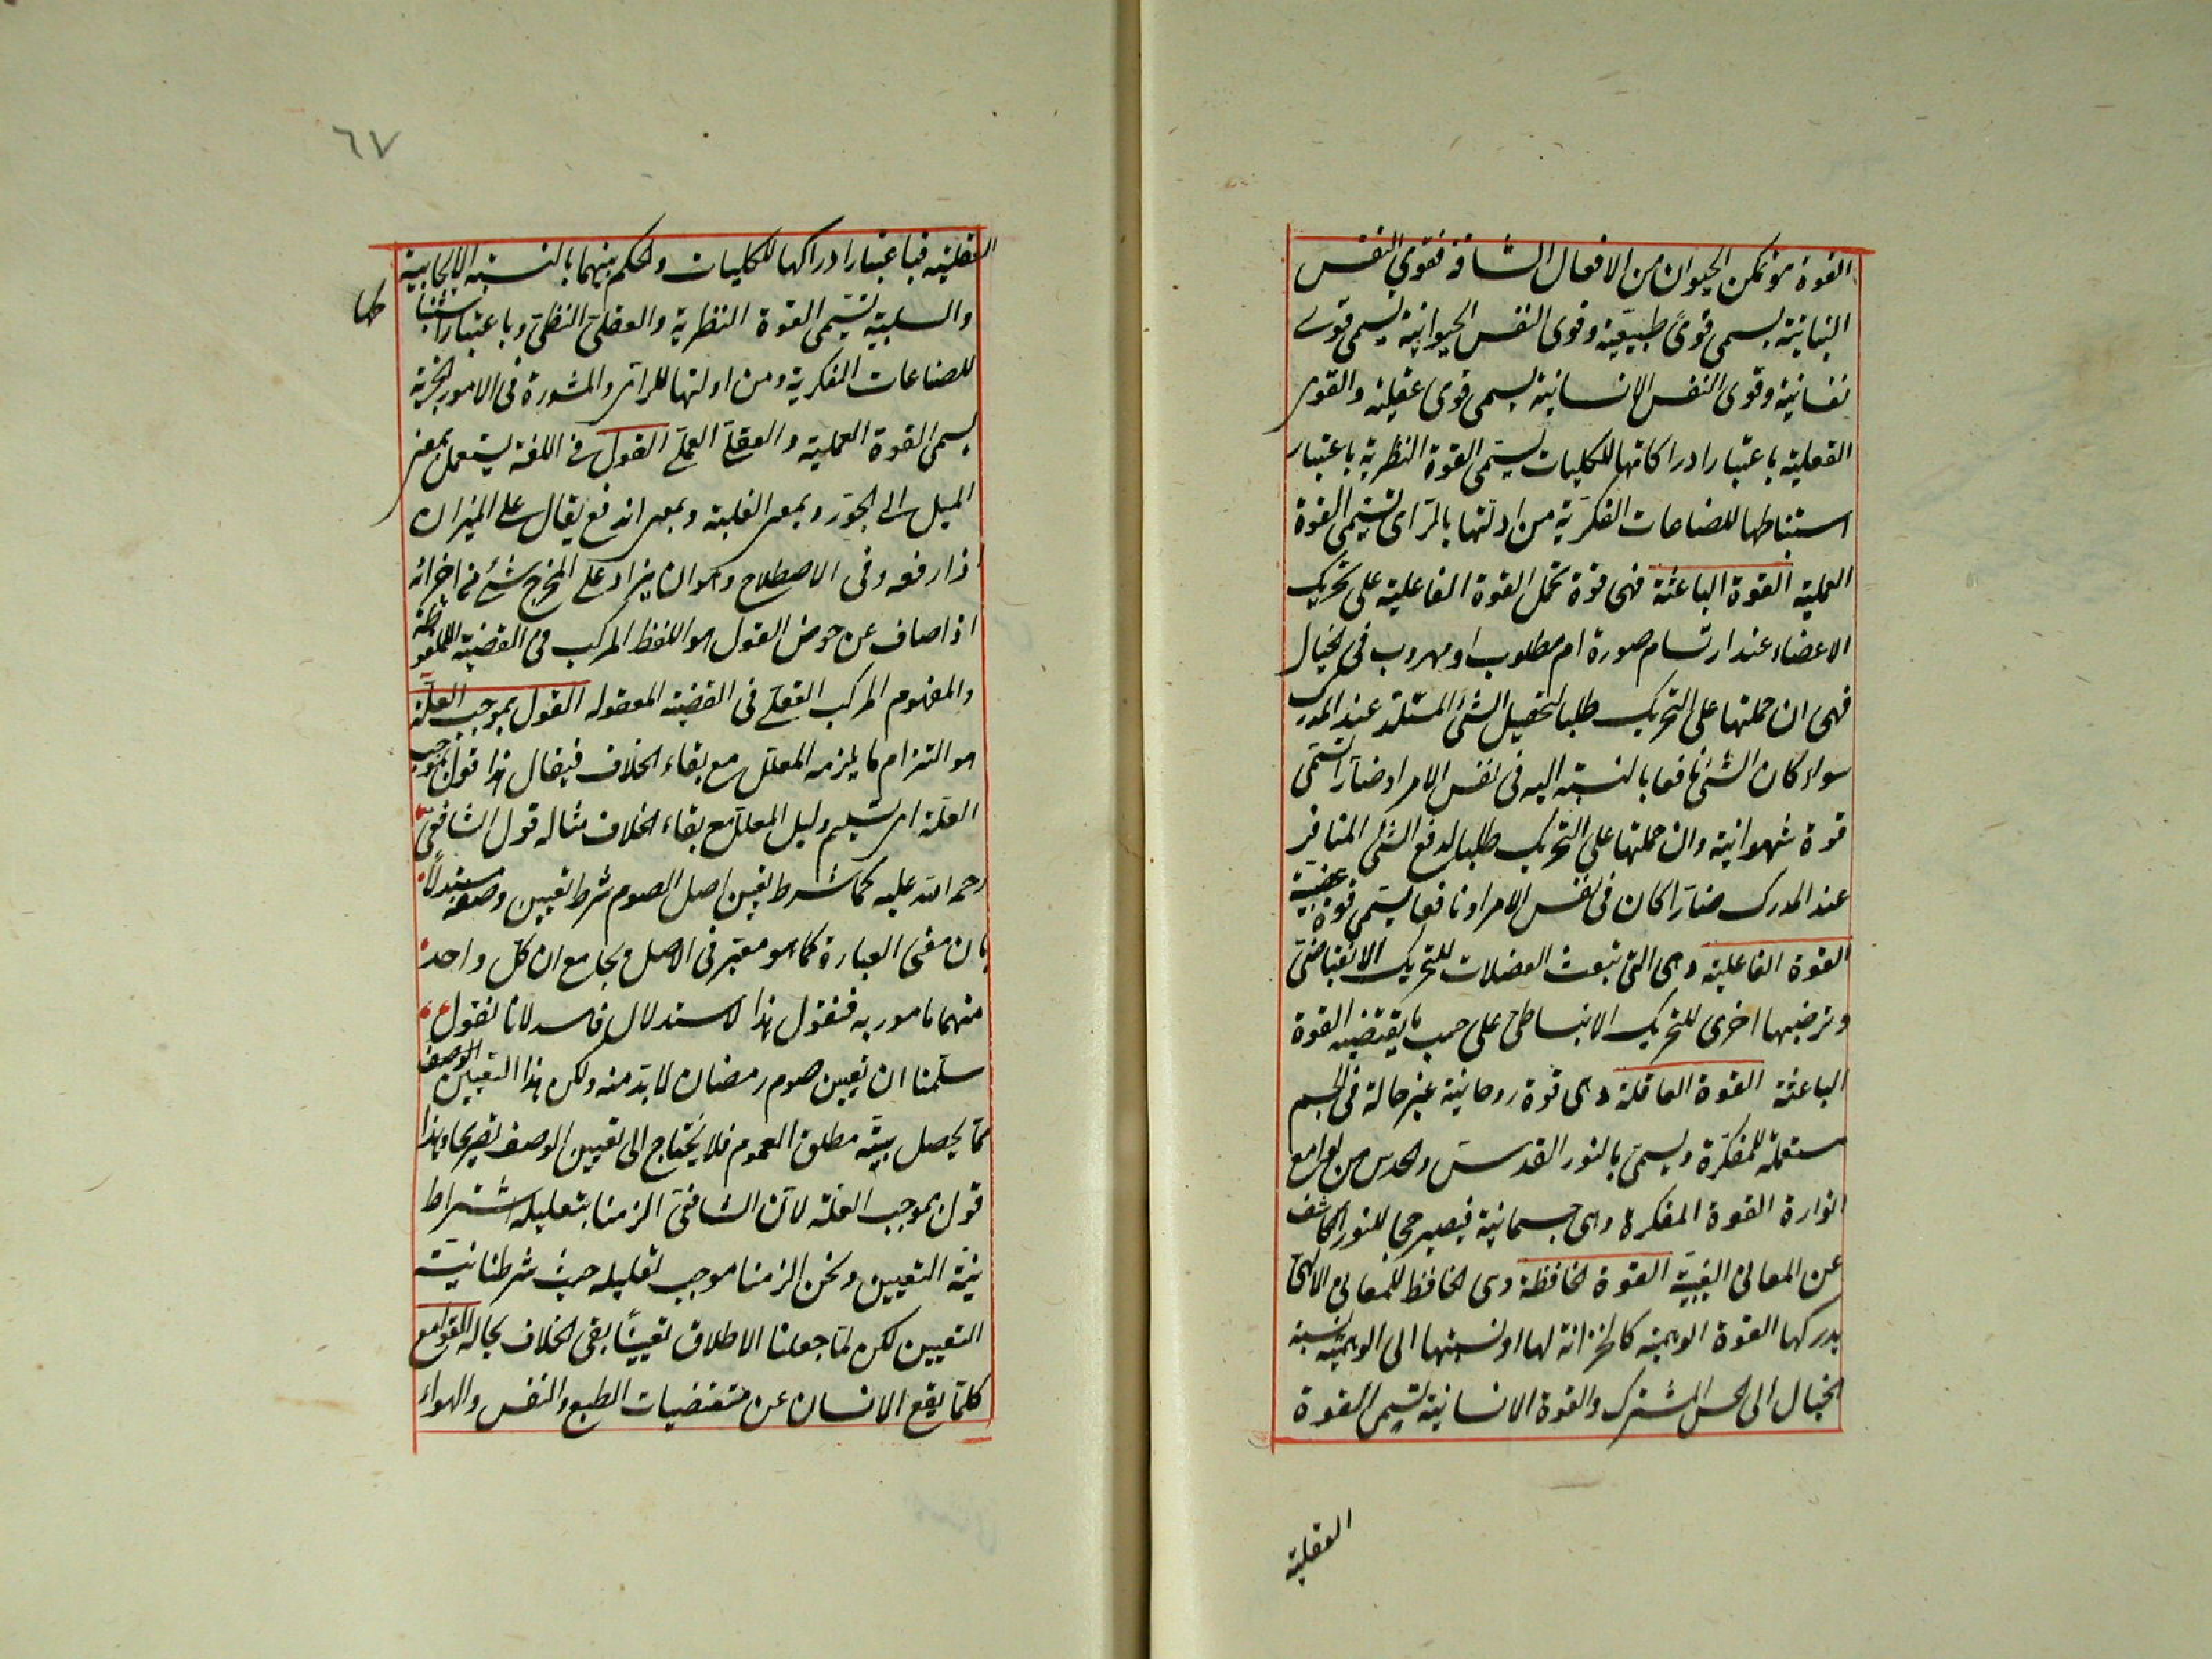 القوة هو تمكن الحيوان من الافعال الشاقة فقوى النفس
النباتية يسمى قوىً طبيعية وقوى النفس الحيوانية يسمى قوى
نفسانية وقوى النفس الانسانية يسمى قوى عقلية والقوى
العقلية باعتبار ادراكاتها للكليات يسمى القوة النظرية باعتبار
استنباطها للصناعات الفكرية من ادلتها بالرأى تسمى القوة
العملية القوة الباعثة فهى قوة تحمل القوة الفاعلية على تحريك
الاعضاء عند ارتسام صورة ام مطلوب او مهروب فى الخيال
فهى ان حملتها على التحريك طلبا لتحصيل الشئ المستلذ عند المدرك
سواء كان الشئ نافعا بالنسبة اليه فى نفس الامر او ضارًا تسمى
قوة شهوانية وان حملتها على التحريك طلبا لدفع الشئ المنافر
عند المدرك ضارًا كان فى نفس الامر او نافعا يسمى قوة غضبية
القوة الفاعلية وهى التى تبعث العضلات للتحريك الانقباضى
وترضيها اخرى للتحريك الانبساطى على حسب ما يقتضيه القوة
الباعثة القوة العاقلة وهى قوة روحانية غير حالة فى الجسم
مستعملة للمفكرة ويسمى بالنور القدسى والحدس من لوامع
انوارة القوة المفكرة وهى جسمانية فيصير حجا للنور الكاشف
عن المعانى الغيبية القوة الحافظة وهى الحافظ للمعانى الالهى
يدركها القوة الوهمية كالخزانة لها او نسبتها الى الوهمية نسبة
الخيال الى الحس المشترك والقوة الانسانية تسمى القوة
العقلية
٦٧
العقلية فباعتبار ادراكها للكليات والحكم بينهما بالنسبة الايجابية
والسلبية تسمى القوة النظرية والعقل النظرى وباعتبار استنبا طها
للصناعات الفكرية ومن ادلتها للرأى والمشورة فى الامور الجزية
يسمى القوة العملية والعقل العملى القول فى اللغة يستعمل بمعنى
الميل الى الجور وبمعنى الغلبة وبمعنى اند فع يقال على الميزان
اذا رفعه وفى الاصطلاح وهو ان يزاد على المخرج شئ من اجزائه
اذا ضاف عن حوض القول هو اللفظ المركب فى القضية الملفوظة
والمفهوم المركب العقلى فى القضية المعقوله القول بموجب العلة
هو التزام ما يلزمه المعلل مع بقاء الخلاف فيقال هذا قول بموجب
العلة اى تسليم دليل المعلل مع بقاء الخلاف مثاله قول الشافعى
رحمه الله عليه كما شرط تعيين اصل الصوم شرط تعيين وصفه مستدلًا
بان معنى العبارة كما هو معتبر فى الاصل وبجامع ان كل واحد
منهما مامور به فنقول هذا لاستدلال فاسد لانا نقول
سلمنا ان تعيين صوم رمضان لابد منه ولكن هذا التعيين الوصف
مما يحصل بنية مطلق الصوم فلا يحتاج الى تعيين الوصف تصريحا وهذا
قول بموجب العلة لان الشافعى الزمنا بتعليله اشتراط
نية التعيين ونحن الزمنا موجب تعليله حيث شرطنا نية
التعيين لكن لما جعلنا الاطلاق تعيينًا بقى الخلاف بحاله القوامع
كلما يقع الانسان عن مقتضيات الطبع والنفس والهواء